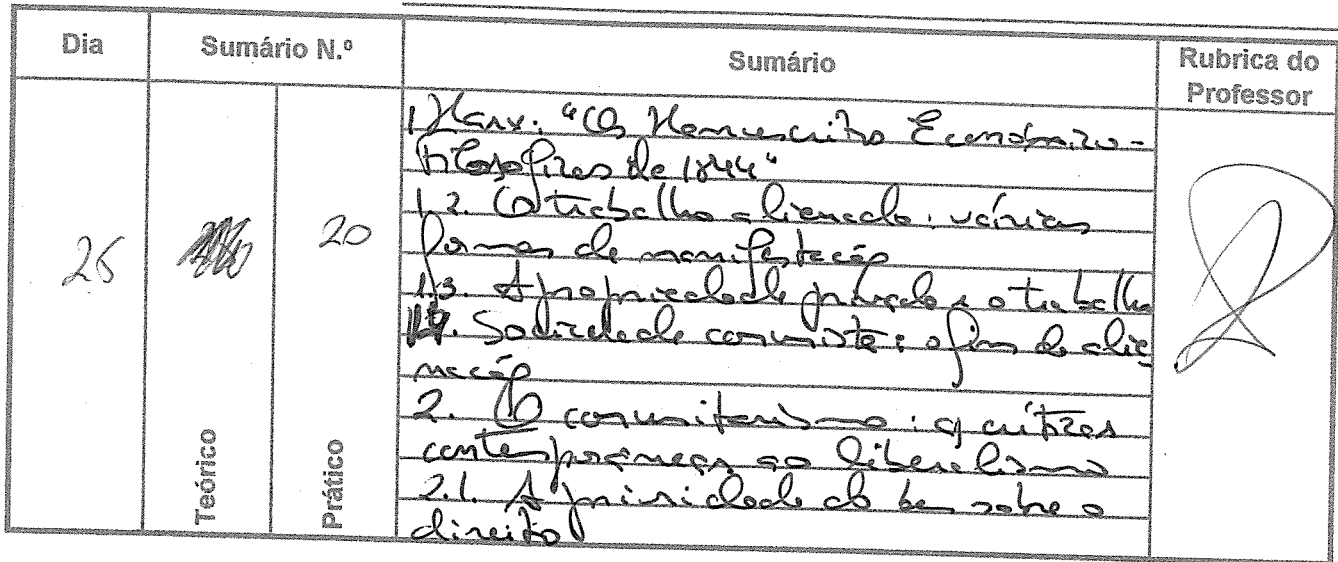 Dia Sumário N.º Sumário Rubrica do Professor
1. Marx: "Os Manuscritos Económico-
Filosóficos de 1844"
1.2. O trabalho alienado: várias
formas de manifestação
1.3. A propriedade privada e o trabalho
1.4. Sociedade comunista: o fim da alie
nação
2. O comunitarismo: as críticas
contemporâneas ao liberalismo
2.1. A prioridade do bem sobre o
direito
26 20
Teórico Prático